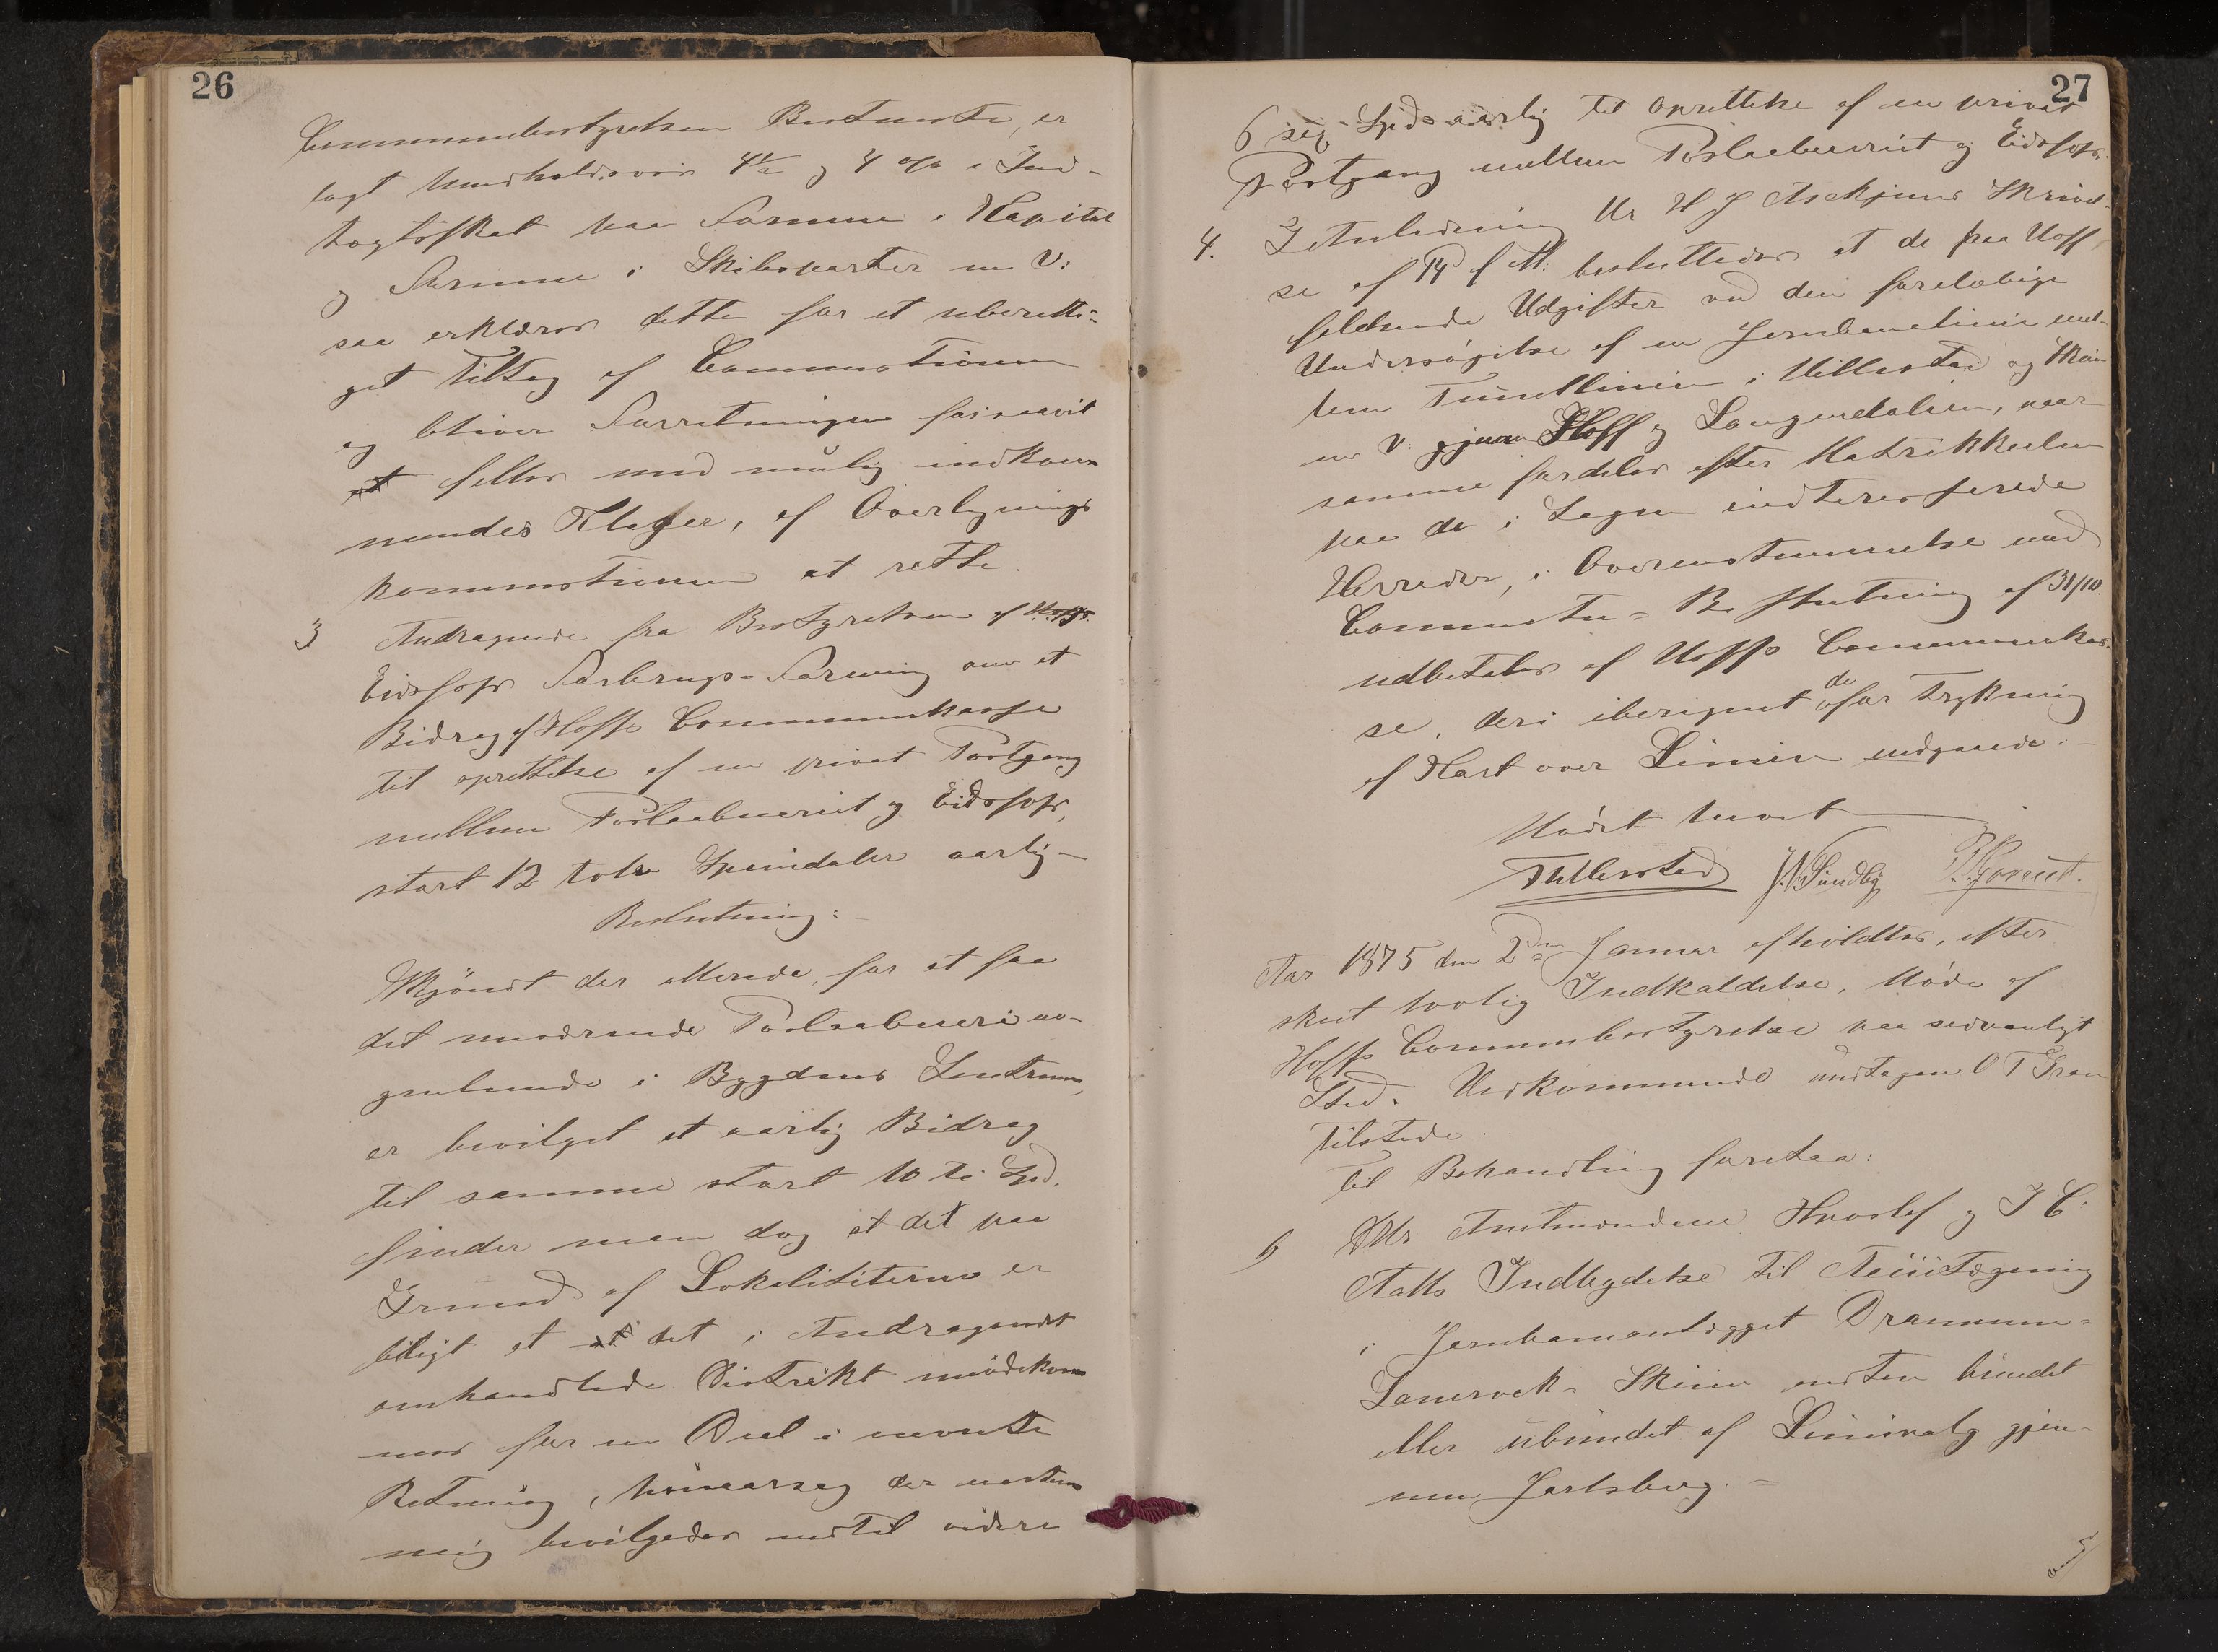 26
Communebestyrelsen Bestemte, er
lagt henholdsvis 4½ og 4 % i Ind-
tægtsskat paa Formue i Kapital
og Formue i Skibsparter m V:
saa erklæres dette for et uberetti-
get Tiltag af Commistionen
og bliver Forretningen forsaavit
at felles med mulig indkom
mendes Klager, af Overlignings
kommistionen at rette.
3 Andragende fra Bestyrelsen af
Eidsfoss Forbrugs-Forening om et
Bidrag af Hoffs Communekasse
til oprettelse af en privat Postgang
mellem Postaabneriet og Eidsfoss,
stort 12 tolv Speeidaler aarlig-
Beslutning:
Skjöndt der allerede, for at faa
det nuværende Postaabneri
i Bygdens Sentrum,
er bevilget et aarlig Bidrag
til samme stort 10 ti Spd.
finder man dog at det paa
Grund af Lokalititerne er
biligt at at det i Andragendet
omhandlede Distrikt imödekom
mes for en Deel i nevnte
Retning, hvisaarsag der
mig bevilgedes indtil videre
27
6 sex Spd aarlig til oprettelse af en privat
Postgang mellem Postaabneriet og Eidsfoss.
4. I Anledning Hr H J Askjems Skrivel-
se af 14 f M: besluttedes at de paa Hoff
faldende Udgifter ved den foreløbige
Undersøgelse af en Jernbanelinie mel-
lem Tunellinien i Hillestad og Skien
m V. gjenn Hoff og Laugendalen, naar
samme fordeles efter Matrikkelen
paa de i Sagen indteresserede
Herreder, i Overenstemmelse med
Committe-Beslutning af 31/10.
udbetales af Hoffs Communekas-
se, deri iberegnet de for Trykning
af Kart over Linien udgaaede.-
Mødet hævet
THillestad J.N.Sundby
Aar 1875 den 2den Januar afholdtes, efter
skeet lovlig Indkaldelse, Møde af
Hoffs Communebestyrelse paa sedvanligt
Sted. Vedkommende undtagen O T Gran
tilstede.
Til Behandling foretaa:
6 Hr Amtmændene Hvoslef og I C.
Aalls Indbydelse til Actietegning
i Jernbaneanlægget Drammen-
Laurvek-Skien enten bundet
eller ubundet af Linievalg gjen-
nem Jarlsberg.-